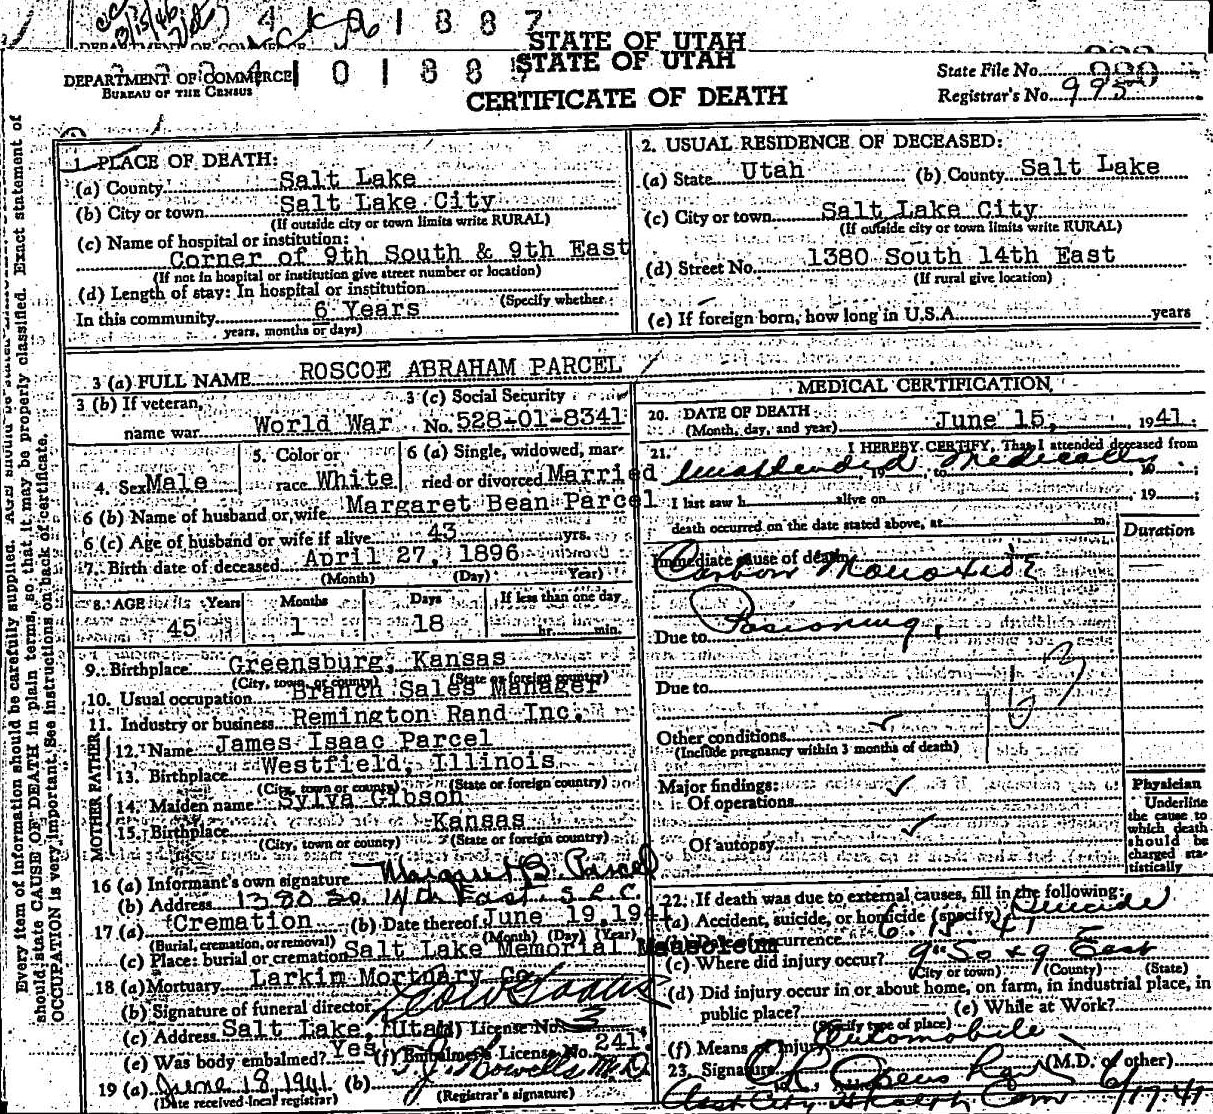 4 1 0 1 8 8 7
STATE OF UTAH
DEPARTMENT OF COMMERCE
BUREAU OF THE CENSUS
STATE OF UTAH
CERTIFICATE OF DEATH
State File No.
Registrar's No. 995
Every item of information should be carefully supplied. AGE should be stated Exact statement of
should state CAUSE OF DEATH in plain terms, so that it may be properly classified.
OCCUPATION is very important. See instructions on back of certificate.
1. PLACE OF DEATH:
(a) County Salt Lake
(b) City or town Salt Lake City
(If outside city or town limits write RURAL)
(c) Name of hospital or institution:
Corner of 9th South & 9th East
(If not in hospital or institution give street number or location)
(d) Length of stay: In hospital or institution
(Specify whether
In this community 6 Years
years, months or days)
2. USUAL RESIDENCE OF DECEASED:
(a) State Utah (b) County Salt Lake
(c) City or town Salt Lake City
(If outside city or town limits write RURAL)
(d) Street No. 1380 South 14th East
(If rural give location)
(e) If foreign born, how long in U.S.A. years
3 (a) FULL NAME ROSCOE ABRAHAM PARCEL
3 (b) If veteran, name war World War
3 (c) Social Security No. 528-01-8341
4. Sex Male
5. Color or race White
6 (a) Single, widowed, married or divorced Married
6 (b) Name of husband or wife Margaret Bean Parcel
6 (c) Age of husband or wife if alive 43 yrs.
7. Birth date of deceased April 27, 1896
(Month) (Day) Year)
8. AGE Years Months Days If less than one day
45 1 18 hr. min.
9. Birthplace Greensburg, Kansas
(City, town, or county) (State or foreign country)
10. Usual occupation Branch Sales Manager
11. Industry or business Remington Rand Inc.
FATHER
12. Name James Isaac Parcel
13. Birthplace Westfield, Illinois
(City, town or county) (State or foreign country)
MOTHER
14. Maiden name Sylva Gibson
15. Birthplace Kansas
(City, town or county) (State or foreign country)
16 (a) Informant's own signature Margaret B. Parcel
(b) Address 1380 So. 14th East. S.L.C.
17 (a) Cremation (b) Date thereof June 19, 1941
(Burial, cremation, or removal) (Month) (Day) (Year)
(c) Place: burial or cremation Salt Lake Memorial Mausoleum
18 (a) Mortuary Larkin Mortuary Co.
(b) Signature of funeral director
(c) Address Salt Lake, Utah (d) License No. 3
(e) Was body embalmed? Yes (f) Embalmer's License No. 241.
19 (a) June 18, 1941 (b) T.J. Howells M.D.
(Date received local registrar) (Registrar's signature)
MEDICAL CERTIFICATION
20. DATE OF DEATH June 15, 1941.
(Month, day, and year)
21. I HEREBY CERTIFY, That I attended deceased from
Unattended, 19 , to Medically 19 ;
I last saw h alive on , 19 ;
death occurred on the date stated above, at m.
Duration
Immediate cause of death
Carbon Monoxide
Posioning,
Due to
Due to
163
Other conditions
(Include pregnancy within 3 months of death)
Major findings:
Of operations
Of autopsy
Physician
Underline
the cause to
which death
should be
charged sta-
tistically
22. If death was due to external causes, fill in the following:
(a) Accident, suicide, or homicide (specify) Suicide
(b) Date of occurrence 6.15.41
(c) Where did injury occur? 9" So & 9 East
(City or town) (County) (State)
(d) Did injury occur in or about home, on farm, in industrial place, in
public place? (e) While at Work?
(Specify type of place)
(f) Means of injury Automobile
23. Signature (M.D. or other)
Asst City Health Com 6/17.41